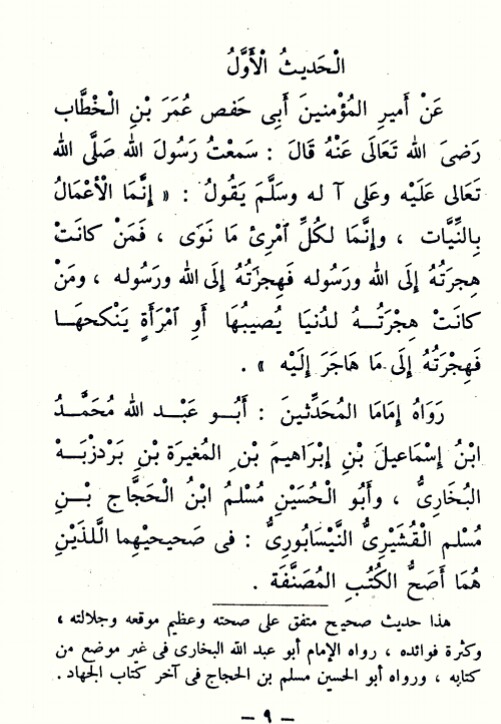 الْحَدِيثُ الْأَوَّلُ
عَنْ أَمِيرِ المُؤْمنينَ أَبِى حَفصٍ عُمَرَ بْنِ الْخَطَّاب
رَضىَ الله تَعَالَى عَنْهُ قَالَ : سَمعْتُ رَسُولَ الله صَلَّى الله
تَعَالى عَلَيْه وعَلى آ له وسَلَّمَ يَقُولُ : « إِنَّمَا الْأَعْمَالُ
بِالنِّيَّات ، وإِنَّمَا لكُلِّ آمْرِئٍ مَا نَوَى ، فَمَنْ كانَتْ
هِجرَتُهُ إِلَى الله ورَسُوله فَهِجْرَتُهُ إِلَى الله ورَسُوله ، ومَنْ
كانَتْ هِجْرَتُـــهُ لدُنيَا يُصيبُهَا أَوِ آمْرَأَةٍ يَنْكحهَـــا
فَهِجْرَتُهُ إِلَى مَا هَاجَرَ إِلَيْه » .
رَوَاهُ إِمَامَا المُحَدِّثينَ : أَبُـــو عَبْـــد الله مُحَمَّـــدُ
ابْنُ إِسْمَاعيلَ بْنِ إِبْرَاهيمَ بْنِ المُغيرَة بْنِ بَرْدزْبَـــهْ
البُخَارِىُّ ، وأَبُو الْحُسَيْنِ مُسْلمُ ابْنُ الْحَجَّاج بْـــنِ
مُسْلم الْقُشَيْرِىُّ النَّيْسَابُورِىُّ : فى صَحيحيْهما الَّلذَيْنِ
هُمَا أَصَحُّ الكُتُبِ المُصَنَّفَة .
هذا حديث صحيح متفق على صحته وعظيم موقعه وجلالته ،
وكثرة فوائده ، رواه الإمام أبو عبد الله البخارى فى غير موضع من
كتابه ، ورواه أبو الحسين مسلم بن الحجاج فى آخر كتاب الجهاد .
– ٩ –